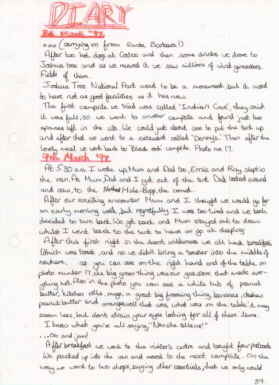 DIARY
8th March '97
... (carrying on from Santa Barbara!)
After hot dog at Costco and then some drinks we drove to
Joshua tree and as we neared it we saw millions of wind generators.
Fields of them.
Joshua Tree National Park used to be a monument but it used
to have not as good facilities as it has now.
The first campsite we tried was called "Indian Cove", they said
it was full, so we went to another campsite and found just two
spaces left on the site. We could just about see to put the tent up
and after that we went to a restaurant called "Denny's". Then after the
lovely meal we went back to 'Black rock' campsite. Photo no. 17.
9th March '97
At 5.30 a.m. I woke up, Mum and Dad too, Ernie and Ray slept in
the van. Mum, Dad and I got out of the tent. Dad looked around
and saw, to the Hale-Bopp, the comet.
After our exciting encounter Mum and I thought we would go for
an early morning walk, but regretfully I was too tired and so we both
decided to turn back. We got back and Mum stayed out to draw
whilst I went back to the tent to have a go at sleeping.
After this first night in the desert wilderness we all had breakfast
(which was toast, and as we didn't bring a toaster into the middle of
nowhere, as you can see on the right hand end of the table, in
photo number 17, the big green thing was our gas stove that made every-
thing hot. Also in the photo you can see a white tub of peanut
butter, kitchen rolls, mugs, a great big foaming thing, bananas, chicken,
peanut butter and orange
well that was what was on the table, it may
seem less, but don't strain your eyes looking for all of these items.
I know what you're all saying "Was she there!"
...oo and jam!
After breakfast we went to the visitor's centre and bought few postcards
We packed up into the van and moved to the next campsite. On the
way we went to two shops, buying other essentials, that we only could